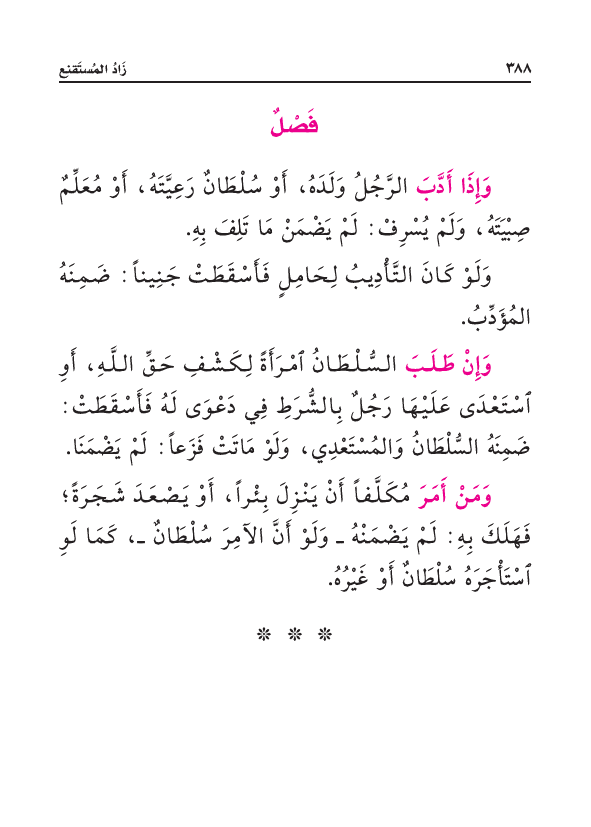 ٣٨٨ زَادُ المُستَقنِع
فَصْلٌ
وَإِذَا أَدَّبَ الرَّجُلُ وَلَدَهُ، أَوْ سُلْطَانٌ رَعِيَّتَهُ، أَوْ مُعَلِّمٌ
صِبْيَتَهُ، وَلَمْ يُسْرِفْ: لَمْ يَضْمَنْ مَا تَلِفَ بِهِ.
وَلَوْ كَانَ التَّأْدِيبُ لِحَامِلٍ فَأَسْقَطَتْ جَنِيناً: ضَمِنَهُ
المُؤَدِّبُ.
وَإِنْ طَلَبَ السُّلْطَانُ ٱمْرَأَةً لِكَشْفِ حَقِّ اللَّهِ، أَوِ
ٱسْتَعْدَى عَلَيْهَا رَجُلٌ بِالشُّرَطِ فِي دَعْوَى لَهُ فَأَسْقَطَتْ:
ضَمِنَهُ السُّلْطَانُ وَالمُسْتَعْدِي، وَلَوْ مَاتَتْ فَزَعاً: لَمْ يَضْمَنَا.
وَمَنْ أَمَرَ مُكَلَّفاً أَنْ يَنْزِلَ بِئْراً، أَوْ يَصْعَدَ شَجَرَةً؛
فَهَلَكَ بِهِ: لَمْ يَضْمَنْهُ ـ وَلَوْ أَنَّ الآمِرَ سُلْطَانٌ ـ، كَمَا لَوِ
ٱسْتَأْجَرَهُ سُلْطَانٌ أَوْ غَيْرُهُ.
❊ ❊ ❊